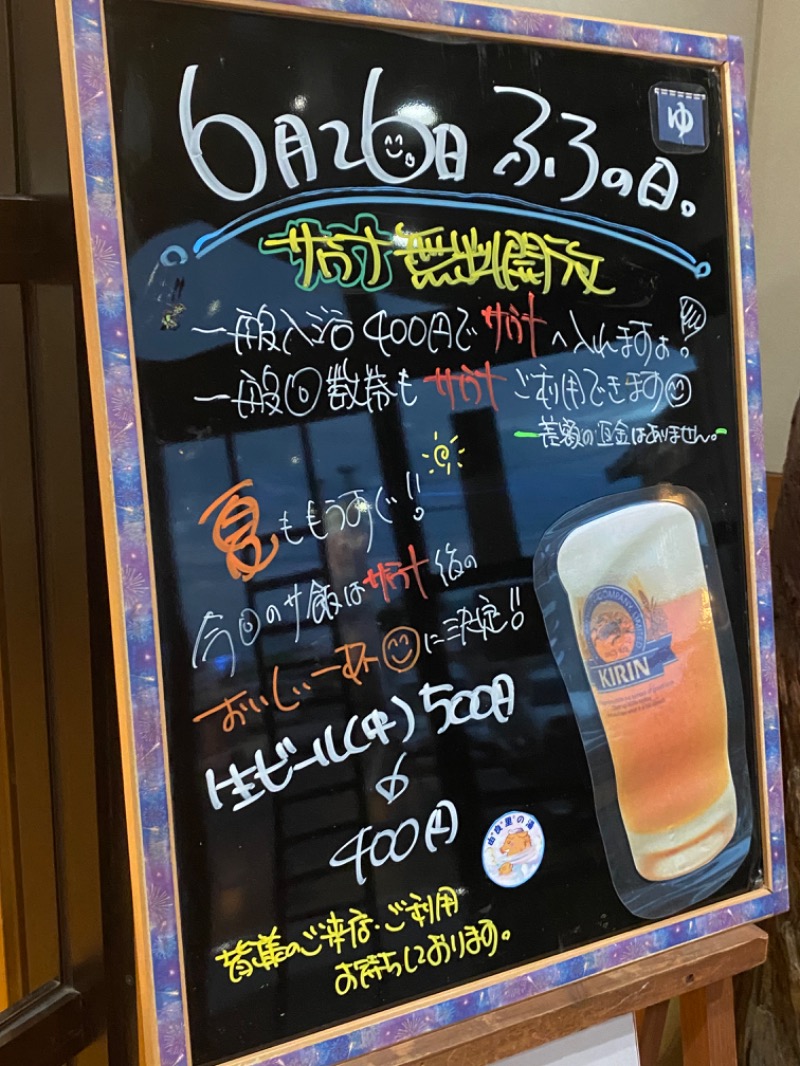 6月26日 ふろの日。
ゆ
サウナ無料開放
一般入浴400円でサウナへ入れますよ。
一般回数券もサウナご利用できます
差額の返金はありません。
夏ももうすぐ!!
今回のサ飯はサウナ後の
おいしい一杯に決定!!
生ビール(中)500円
400円
皆様のご来店・ご利用
お待ちしております。
COMPANY, LIMITED
KIRIN
の湯